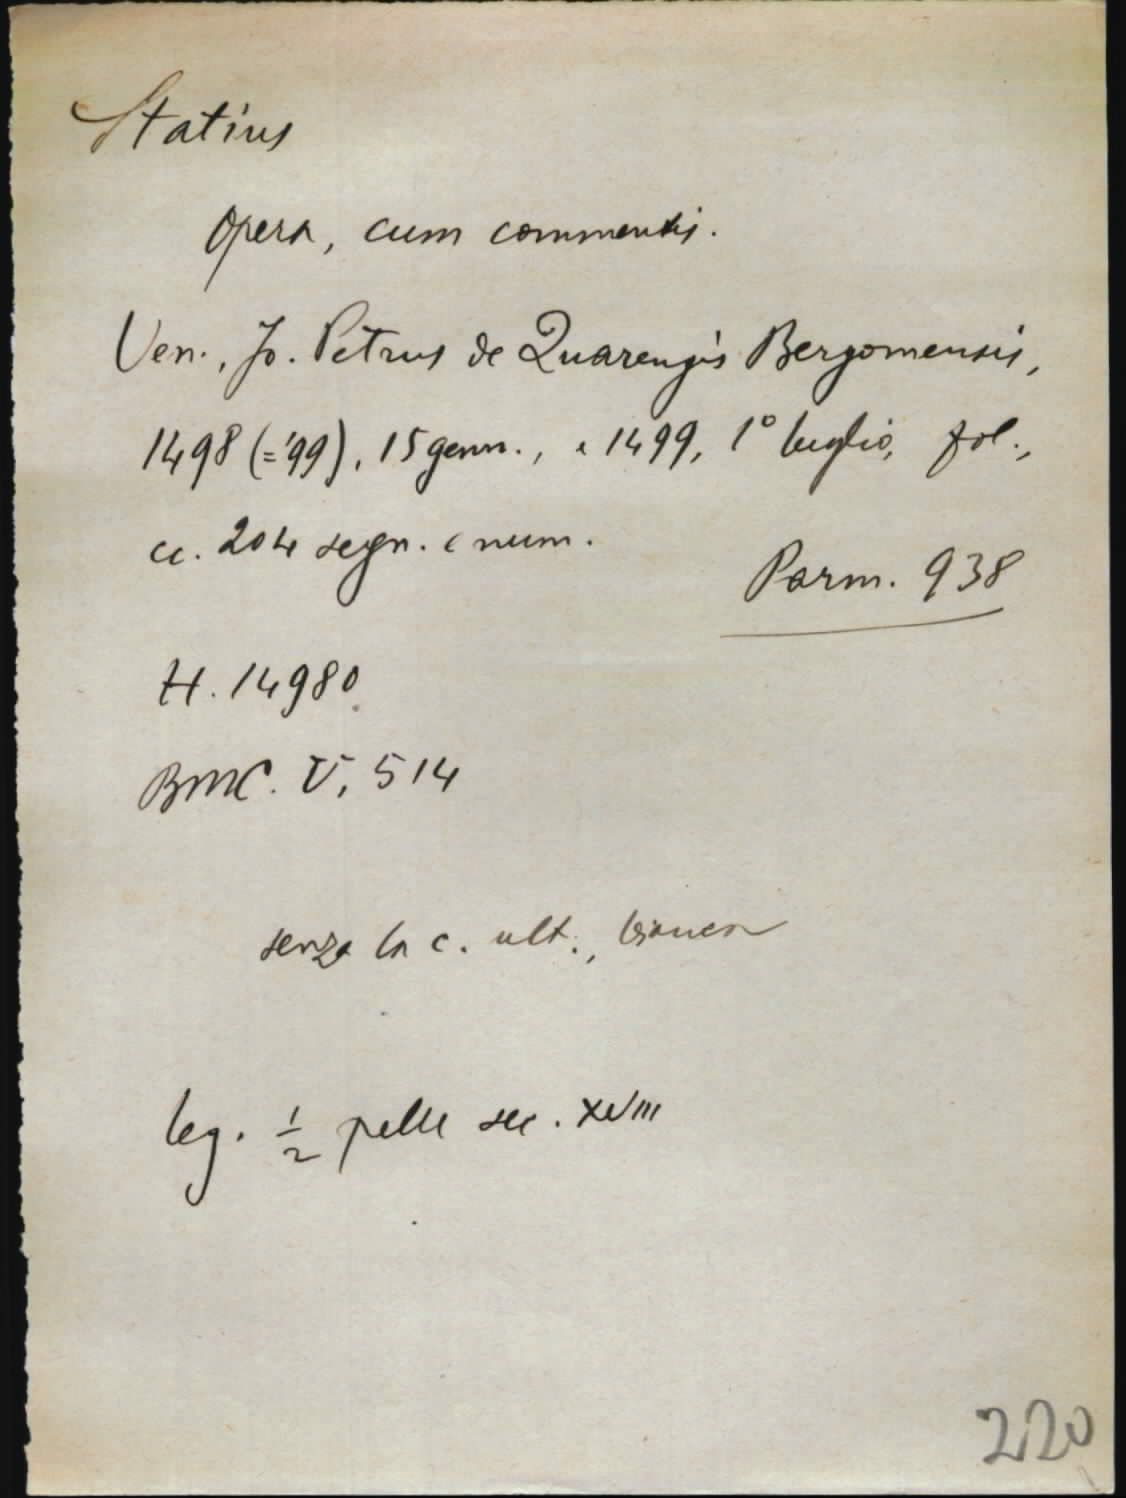 Statius
Opera, cum commentis.
Ven., Jo. Petrus de Quarengis Bergomensis,
1498 (='99), 15 genn., e 1499, 1° luglio, fol.,
cc. 204 segn. e num.
Parm. 938
H. 14980
BMC. V, 514
senza la c. ult., bianca
leg. 1/2 pelle sec. XVIII
220